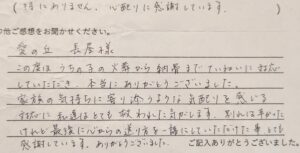 (特にありません。心配りに感謝しています。)
の他ご感想をお聞かせください。
愛の丘 長屋様
この度はうちの子の火葬から納骨までていねいに対応
していただき、本当にありがとうございました。
家族の気持ちに寄り添うような気配りを感じる
対応に私達はとても救われた気がします。別れは辛かった
けれど最後に心からの送り方を一緒にしていただけた事とても
感謝しています。ありがとうございました。
ご記入ありがとうございました。